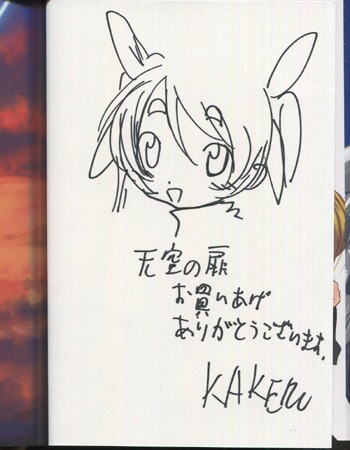 天空の扉
お買いあげ
ありがとうございます。
KAKERU